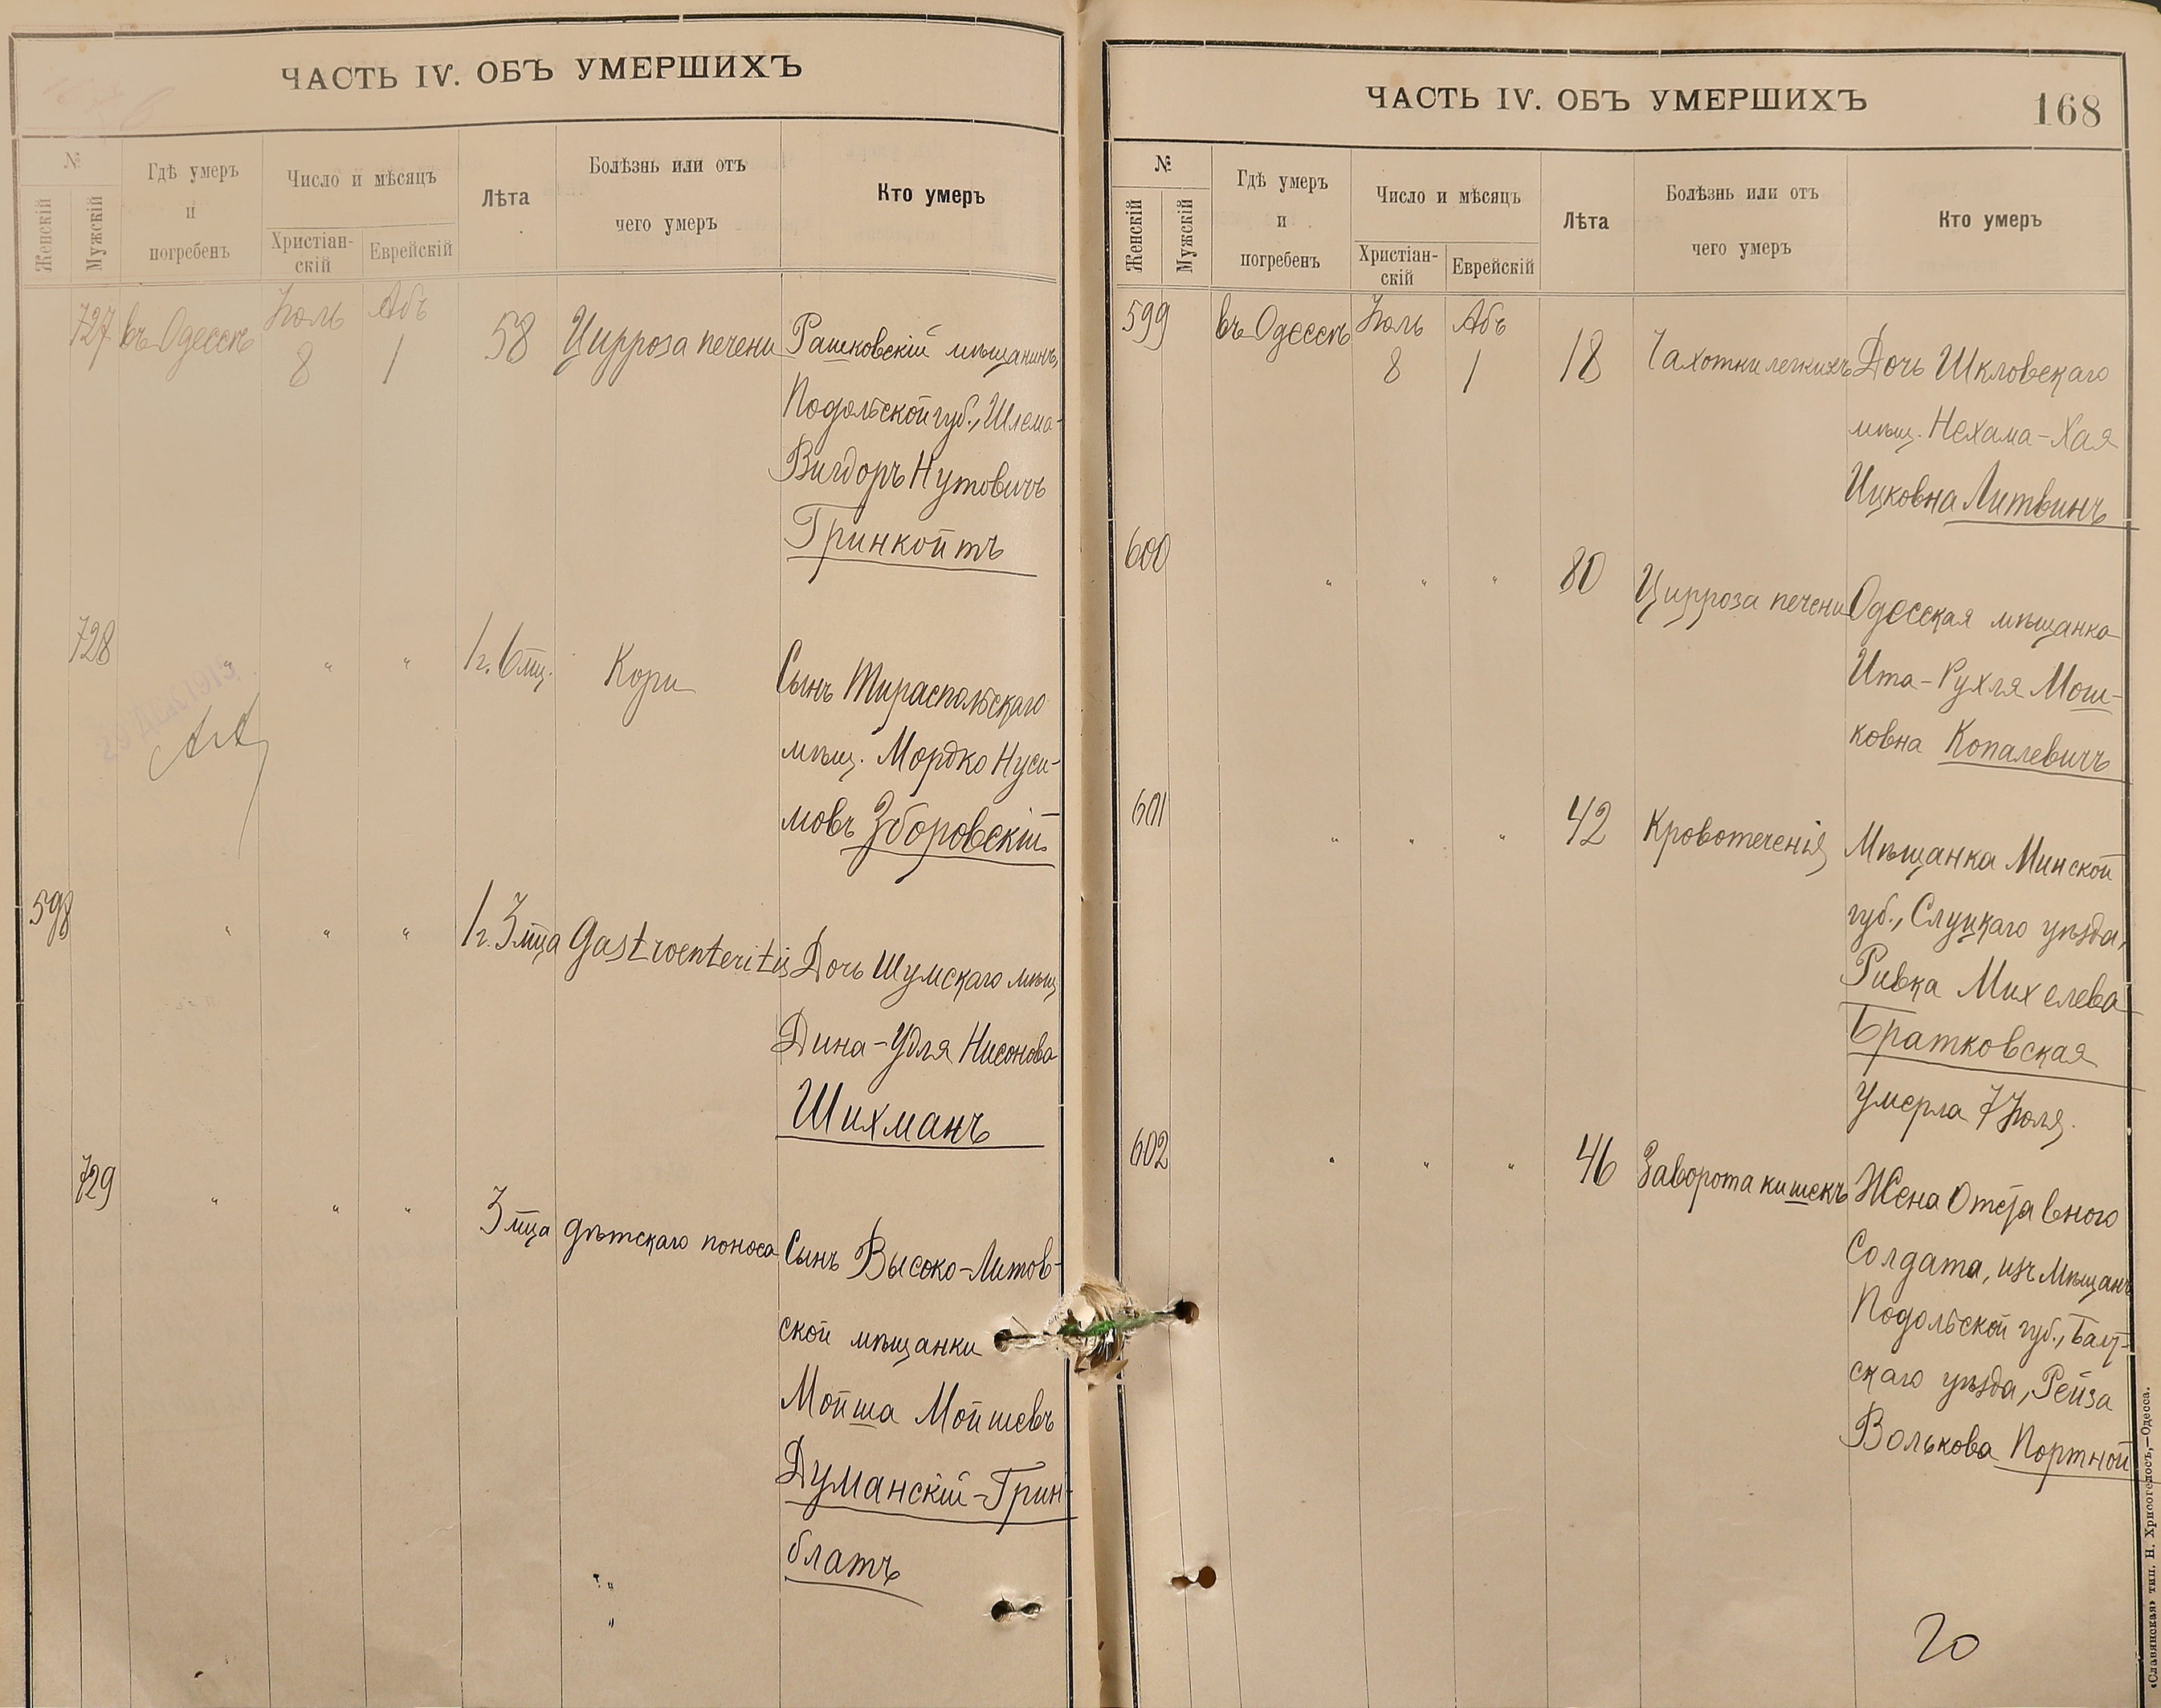 ЧАСТЬ IV. ОБЪ УМЕРШИХЪ
№
Женскій
Мужскій
Гдѣ умеръ
и
погребенъ
Число и мѣсяцъ
Христіан-
скій
Еврейскій
Лѣта
Болѣзнь или отъ
чего умеръ
Кто умеръ
727 въ Одессѣ Іюль 8 Абъ 1 58 Цирроза печени Рашковскій мѣщанинъ,
Подольской губ., Шлема-
Вигдоръ Нутовичъ
Гринкойтъ
728 " " " 1 г. 6 мц. Кори Сынъ Тираспольскаго
мѣщ. Мордко Нуси-
мовъ Зборовскій
598 " " " 1 г. 3 мца Gastroenteritis Дочь Шумскаго мѣщ
Дина-Удля Нисонова
Шихманъ
729 " " " 3 мца дѣтскаго поноса Сынъ Высоко-Литов-
ской мѣщанки
Мойша Мойшевъ
Думанскій-Грин-
блатъ
ЧАСТЬ IV. ОБЪ УМЕРШИХЪ
168
№
Женскій
Мужскій
Гдѣ умеръ
и
погребенъ
Число и мѣсяцъ
Христіан-
скій
Еврейскій
Лѣта
Болѣзнь или отъ
чего умеръ
Кто умеръ
599 въ Одессѣ Іюль 8 Абъ 1 18 Чахотки легкихъ Дочь Шкловскаго
мѣщ. Нехама-Хая
Ицковна Литвинъ
600 " " " 80 Цирроза печени Одесская мѣщанка
Ита-Рухля Мош-
ковна Копалевичъ
601 " " " 42 Кровотеченія Мѣщанка Минской
губ., Слуцкаго уѣзда,
Ривка Михелева
Братковская
умерла 7 Іюля.
602 " " " 46 Заворота кишекъ Жена Отставного
Солдата, изъ мѣщанъ
Подольской губ., Балт-
скаго уѣзда, Рейза
Волькова Портной
20
«Славянская» тип. Н. Хрисогелосъ,—Одесса.